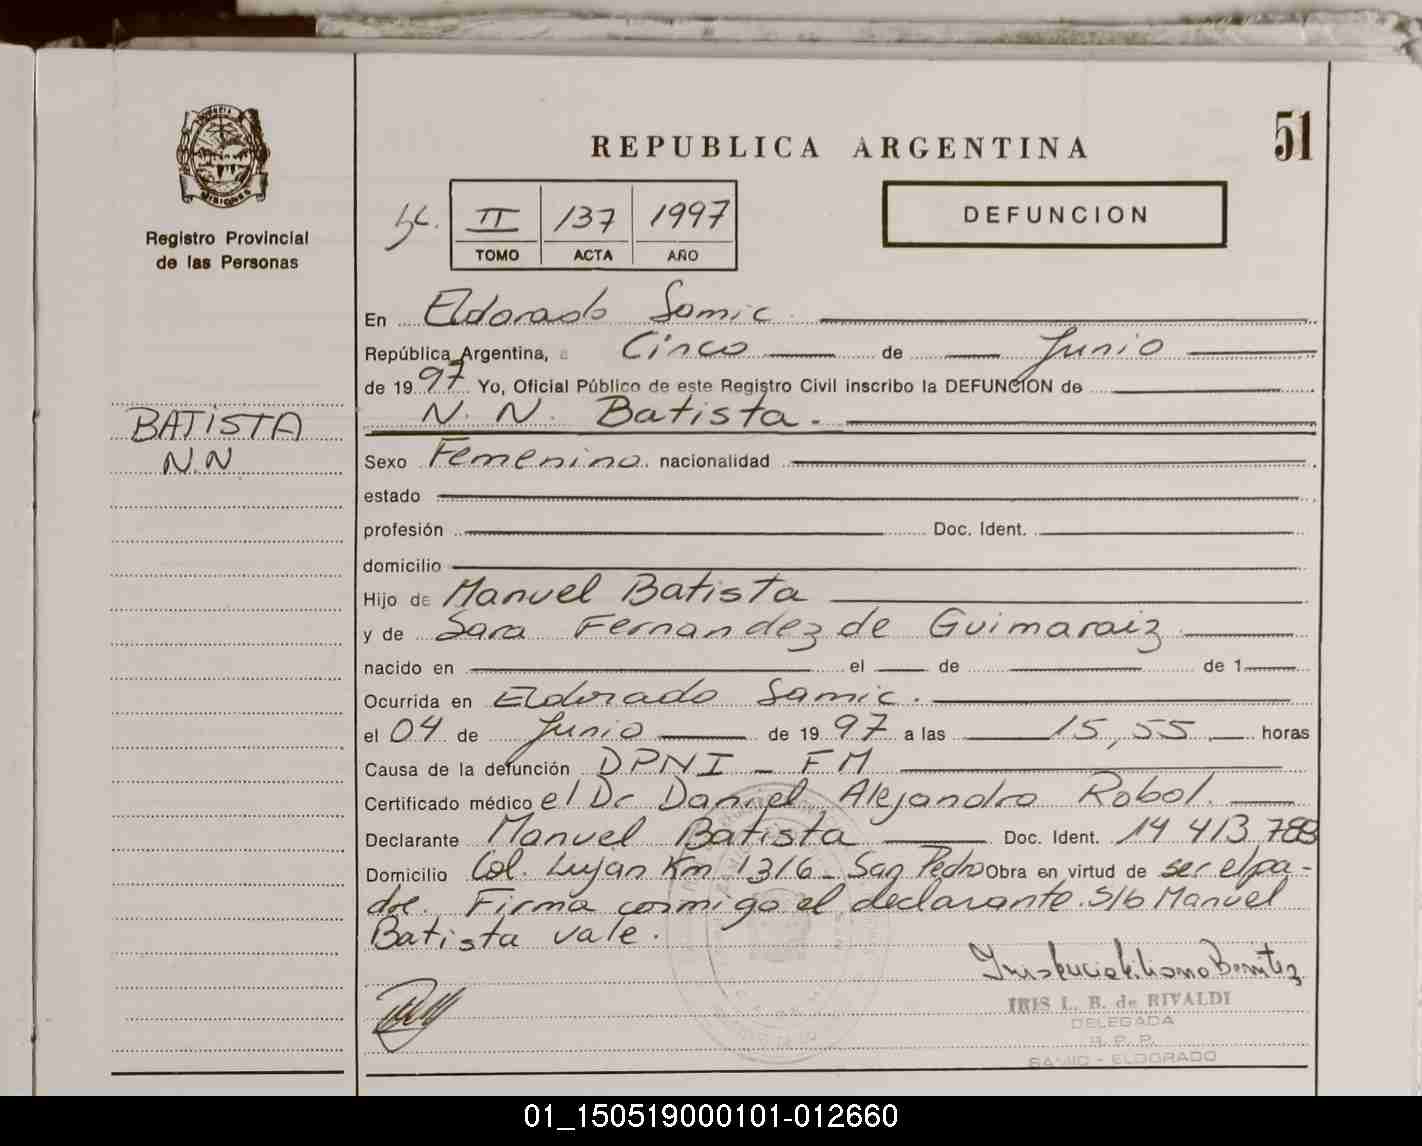 REPUBLICA ARGENTINA
51
II 137 1997
TOMO ACTA AÑO
DEFUNCION
Registro Provincial
de las Personas
MISIONES
BATISTA
N.N
En Eldorado Samic
República Argentina, a Cinco de Junio
de 1997 Yo, Oficial Público de este Registro Civil inscribo la DEFUNCION de
N. N. Batista.
Sexo Femenino nacionalidad
estado
profesión Doc. Ident.
domicilio
Hijo de Manuel Batista
y de Sara Fernandez de Guimaraiz
nacido en el de de 1
Ocurrida en Eldorado Samic.
el 04 de Junio de 1997 a las 15,55 horas
Causa de la defunción DPNI - FM
Certificado médico el Dr Daniel Alejandro Robol.
Declarante Manuel Batista Doc. Ident. 14 413 788
Domicilio Col. Lujan Km 1316 - San Pedro Obra en virtud de ser el pa-
dre. Firma conmigo el declarante. S/b Manuel
Batista vale.
IRIS L. B. de RIVALDI
DELEGADA
R. P. P.
SAMIC - ELDORADO
01_150519000101-012660